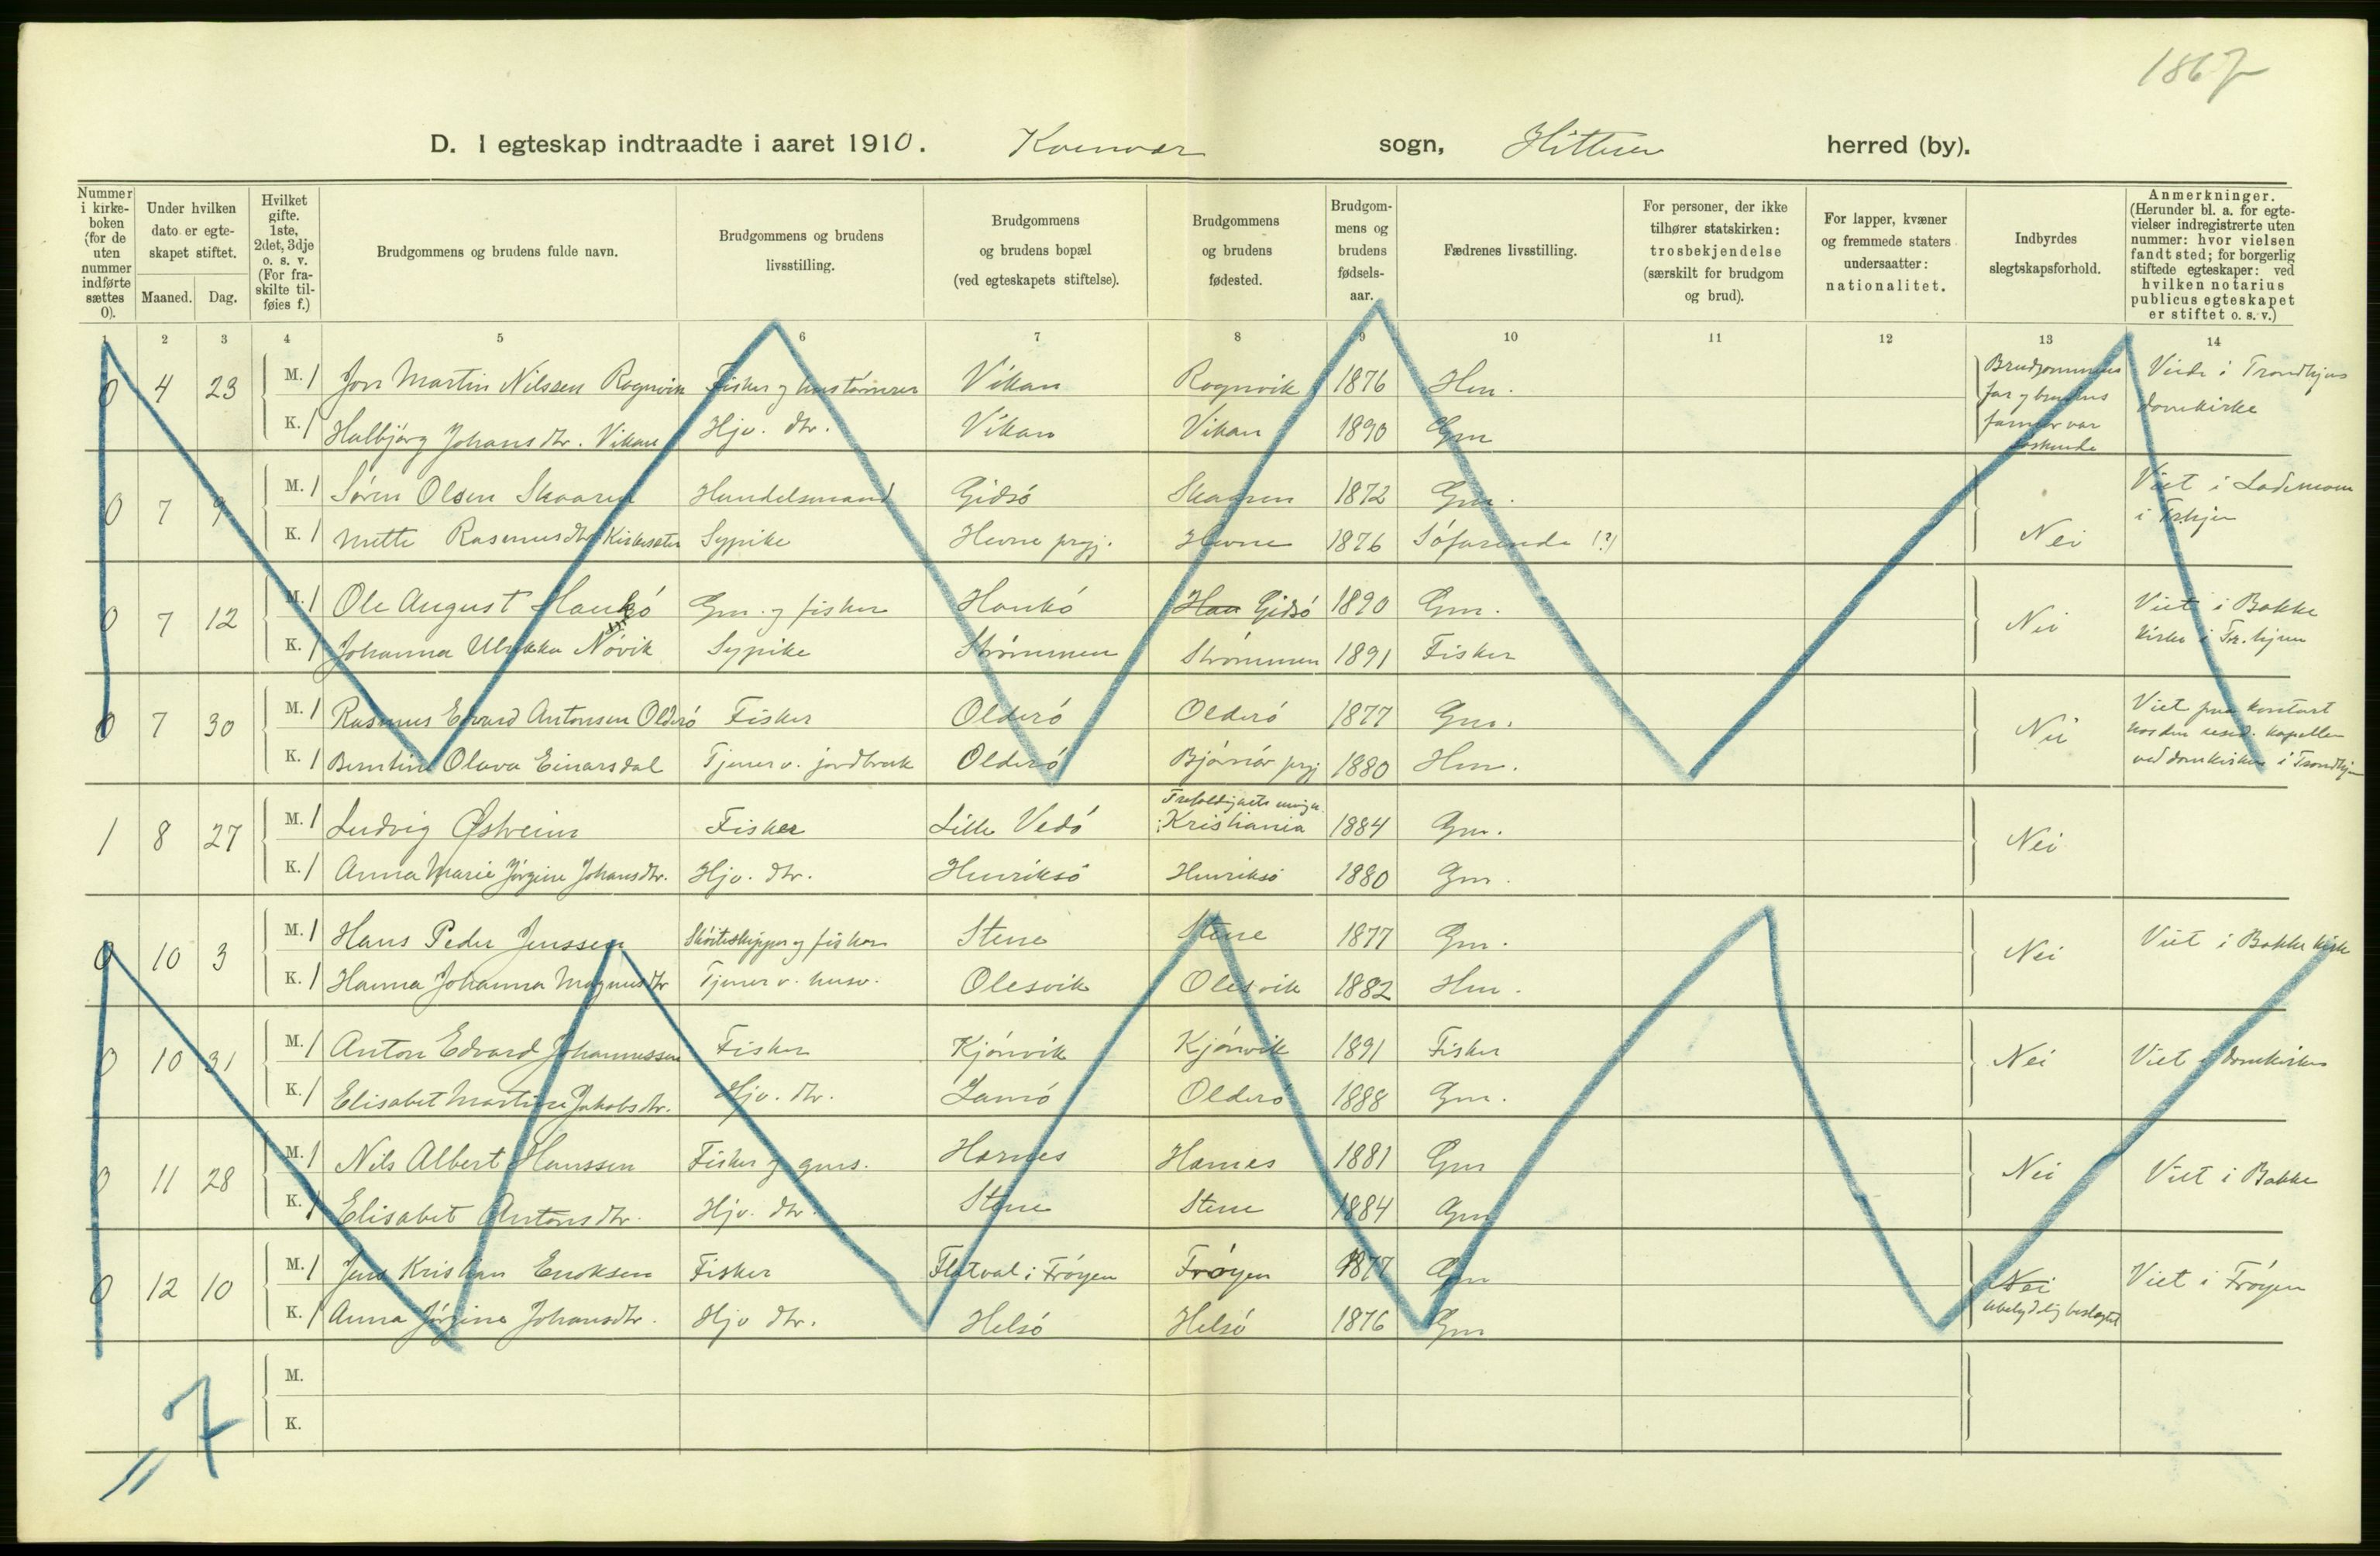 1867
D. I egteskap indtraadte i aaret 1910. Kvenvær sogn, Hitteren herred (by).
Nummer i kirkeboken (for de uten nummer indførte sættes 0).
Under hvilken dato er egteskapet stiftet.
Maaned. Dag.
Hvilket gifte. 1ste, 2det, 3dje o. s. v. (For fraskilte tilføies f.)
Brudgommens og brudens fulde navn.
Brudgommens og brudens livsstilling.
Brudgommens og brudens bopæl (ved egteskapets stiftelse).
Brudgommens og brudens fødested.
Brudgommens og brudens fødselsaar.
Fædrenes livsstilling.
For personer, der ikke tilhører statskirken: trosbekjendelse (særskilt for brudgom og brud).
For lapper, kvæner og fremmede staters undersaatter: nationalitet.
Indbyrdes slegtskapsforhold.
Anmerkninger. (Herunder bl. a. for egtevielser indregistrerte uten nummer: hvor vielsen fandt sted; for borgerlig stiftede egteskaper: ved hvilken notarius publicus egteskapet er stiftet o. s. v.)
1 2 3 4 5 6 7 8 9 10 11 12 13 14
0 4 23 M. 1 Jon Martin Nilssen Rognvik Fisker og hustømrer Vikan Rognvik 1876 Hm. Brudgommens far og brudens farmor var søskende Viede i Trondhjems domkirke
K. 1 Halbjørg Johansdtr. Vikan Hjv. dtr. Vikan Vikan 1890 Gm
0 7 9 M. 1 Søren Olsen Skaaren Handelsmand Gidsø Skaaren 1872 Gm. Viet i Lademoen i Trhjem
K. 1 Mette Rasmusdtr Kirksæter Sypike Hevne prgj. Hevne 1876 Sófarende (?) Nei
0 7 12 M. 1 Ole August Haukó Gm. og fisker Haukó Hau Gidsó 1890 Gm. Nei Viet i Bakke kirke i Tr.hjem
K. 1 Johanna Ulrikka Nóvik Sypike Strómmen Strómmen 1891 Fisker
0 7 30 M. 1 Rasmus Edvard Antonsen Olderó Fisker Olderó Olderó 1877 Gm. Nei Viet paa kontoret hos den resid. kapellan ved domkirken i Trondhjem
K. 1 Berntine Olava Einarsdal Tjener v. jordbruk Olderó Bjórnór prgj 1880 Hm.
1 8 27 M. 1 Ludvig Østreim Fisker Lille Vedó Trefoldighets menigh. Kristiania 1884 Gm. Nei
K. 1 Anna Marie Jórgine Johansdtr. Hjv. dtr. Henriksó Henriksó 1880 Gm.
0 10 3 M. 1 Hans Peder Jenssen Skóiteskipper og fisker Stene Stene 1877 Gm. Nei Viet i Bakke kirke
K. 1 Hanna Johanna Magnusdtr Tjener v. husv. Olesvik Olesvik 1882 Hm.
0 10 31 M. 1 Anton Edvard Johannessen Fisker Kjónvik Kjónvik 1891 Fisker Nei Viet i domkirken
K. 1 Elisabet Martine Jakobsdtr. Hjv. dtr. Lamó Olderó 1888 Gm.
0 11 28 M. 1 Nils Albert Hanssen Fisker og gms. Hamnes Hamnes 1881 Gm Nei Viet i Bakke
K. 1 Elisabet Antonsdtr. Hjv. dtr. Stene Stene 1884 Gm
0 12 10 M. 1 Jens Kristian Enoksen Fisker Flatval i Fróyen Fróyen 1877 Gm Nei ubetydelig beslegtet Viet i Fróyen
K. 1 Anna Jórgine Johansdtr. Hjv dtr. Helsó Helsó 1876 Gm
M.
K.
7